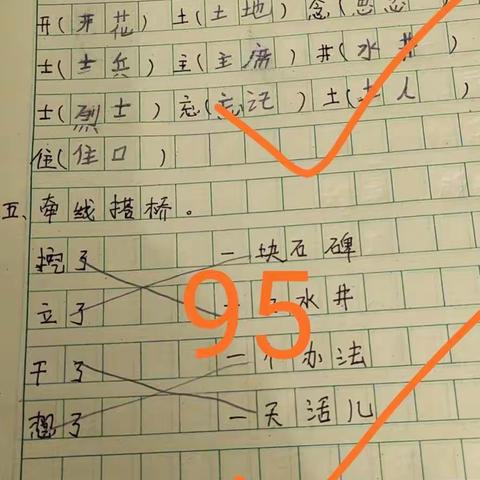 开(开花) 土(土地) 念(思念)
士(士兵) 主(主席) 井(水井)
士(烈士) 忘(忘记) 土(土人)
住(住口)
五、牵线搭桥。
挖了 一块石碑
立了 一 水井
干了 一个办法
想了 一天活儿
95